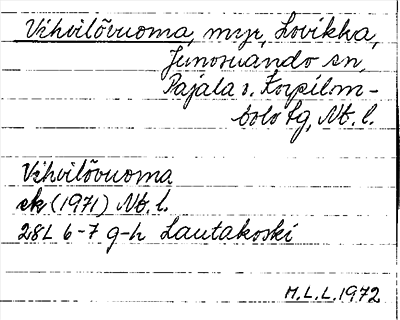 Vihvilõvuoma, myr, Lovikka,
Junosuando sn,
Pajala o. Korpilom-
bolo tg, Nb. l.
Vihvilõvuoma
ek (1971) Nb. l.
28L 6-7 g-h Lautakoski
M.L.L. 1972